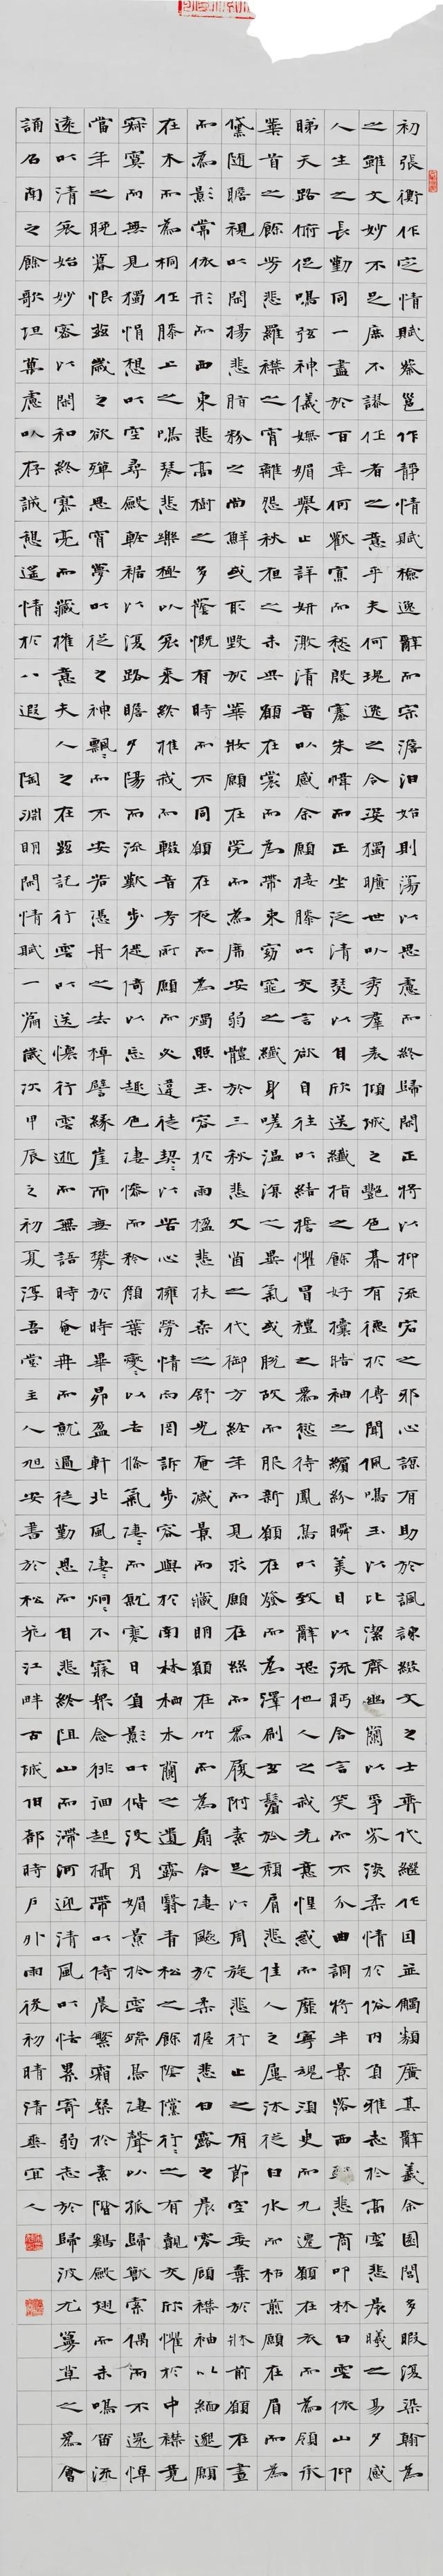 初張衡作定情賦蔡邕作靜情賦檢逸辭而宗澹泊始則蕩以思慮而終歸閑正將以抑流宕之邪心諒有助於諷諫綴文之士奕代繼作因並觸類廣其辭義余園閭多暇復染翰為
之雖文妙不足庶不謬作者之意乎夫何瑰逸之令姿獨曠世以秀羣表傾城之艷色期有德於傳聞佩鳴玉以比潔齊幽蘭以爭芬淡柔情於俗內負雅志於高雲悲晨曦之易夕感
人生之長勤同一盡於百年何歡寡而愁殷褰朱幃而正坐泛清瑟以自欣送纖指之餘好攘皓袖之繽紛瞬美目以流眄含言笑而不分曲調將半景落西軒悲商叩林白雲依山仰
睇天路俯促鳴弦神儀嫵媚舉止詳妍激清音以感余願接膝以交言欲自往以結誓懼冒禮之為愆待鳳鳥以致辭恐他人之我先意惶惑而靡寧魂須臾而九遷願在衣而為領承
華首之餘芳悲羅襟之宵離怨秋夜之未央願在裳而為帶束窈窕之纖身嗟溫涼之異氣或脫故而服新願在髮而為澤刷玄鬢於頹肩悲佳人之屢沐從白水而枯煎願在眉而為
黛隨瞻視以閑揚悲脂粉之尚鮮或取毀於華妝願在莞而為席安弱體於三秋悲文茵之代御方經年而見求願在絲而為履附素足以周旋悲行止之有節空委棄於床前願在晝
而為影常依形而西東悲高樹之多蔭慨有時而不同願在夜而為燭照玉容於兩楹悲扶桑之舒光奄滅景而藏明願在竹而為扇含淒飆於柔握悲白露之晨零顧襟袖以緬邈願
在木而為桐作膝上之鳴琴悲樂極以哀來終推我而輟音考所願而必違徒契々以苦心擁勞情而罔訴步容與於南林栖木蘭之遺露翳青松之餘陰儻行々之有覿交欣懼於中襟竟
寂寞而無見獨悁想以空尋斂輕裾以復路瞻夕陽而流歎步徙倚以忘趣色淒慘而矜顏葉燮々以去條氣淒々而就寒日負影以偕沒月媚景於雲端鳥淒聲以孤歸獸索偶而不還悼
當年之晚暮恨茲歲之欲殫思宵夢以從之神飄々而不安若憑舟之失棹譬緣崖而無攀於時畢昴盈軒北風淒々炯々不寐眾念徘徊起攝帶以侍晨繁霜粲於素階雞斂翅而未鳴笛流
遠以清哀始妙密以閑和終寥亮而藏摧意夫人之在茲託行雲以送懷行雲逝而無語時奄冉而就過徒勤思而自悲終阻山而滯河迎清風以怯累寄弱志於歸波尤蔓草之為會
誦召南之餘歌坦萬慮以存誠憩遙情於八遐 陶淵明閑情賦一篇歲次甲辰之初夏淳吾堂主人旭安書於松花江畔古城伯都時戶外雨後初晴清爽宜人